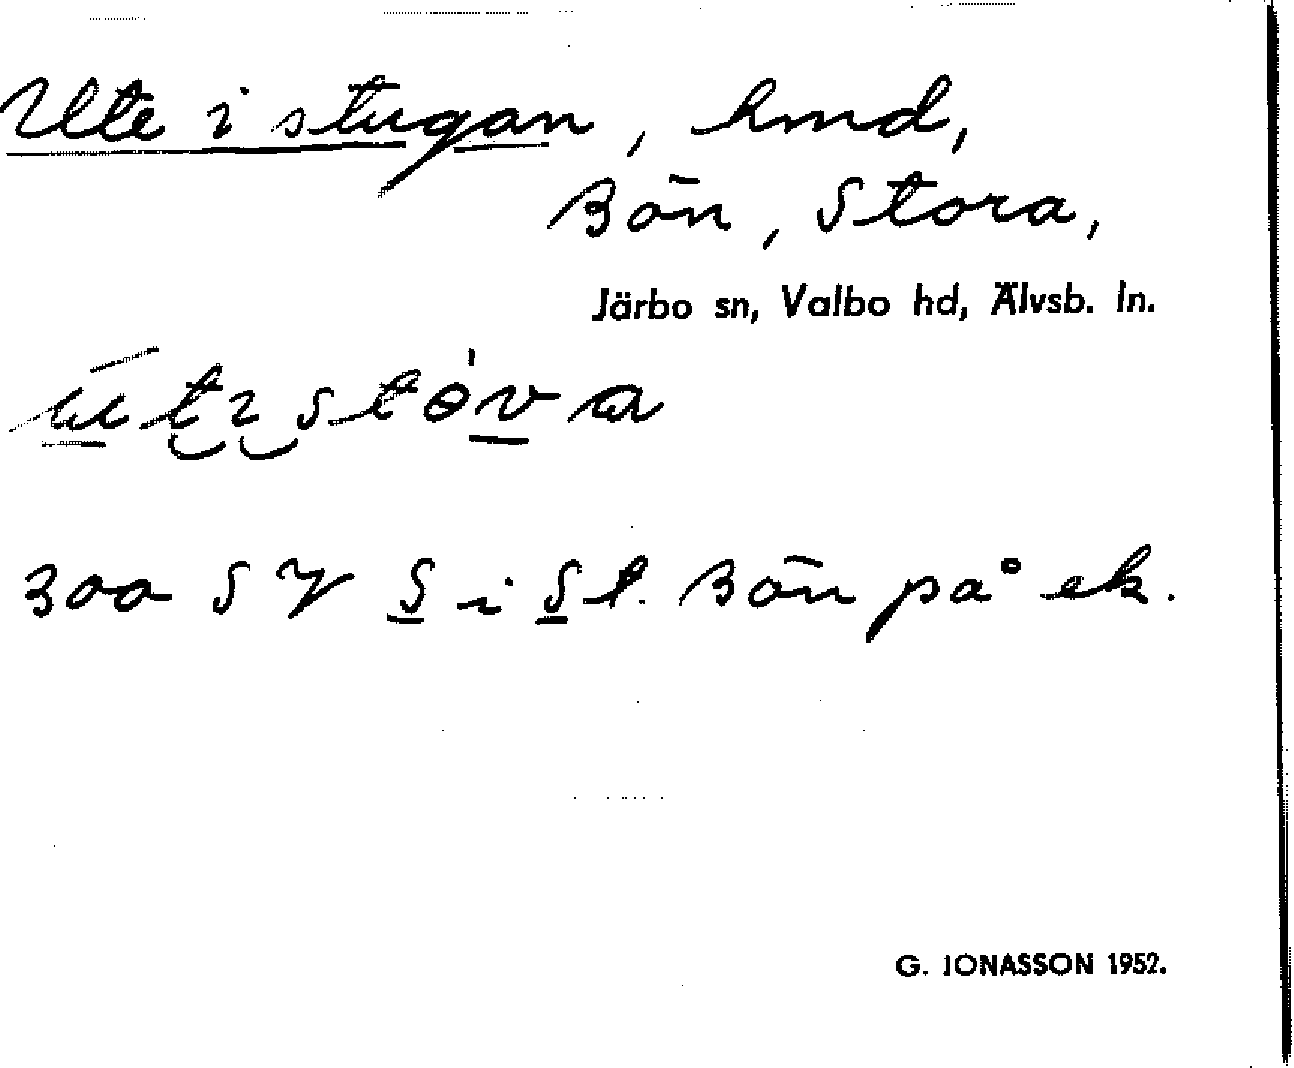 Ute i stugan, hmd,
Bön, Stora,
Järbo sn, Valbo hd, Älvsb. ln.
300 S V S i St. Bön på ek.
G. JONASSON 1952.